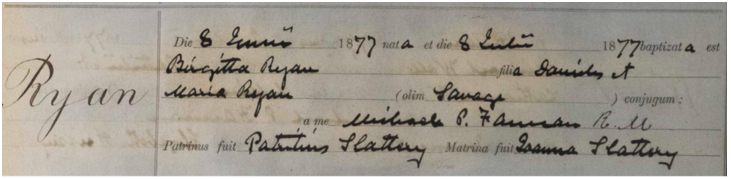 Ryan
Die 8 Junii 1877 nata et die 8 Julii 1877 baptizata est
Birgitta Ryan filia Danielis et
Maria Ryan (olim Savage) conjugum:
a me Michael P. R. M
Patrinus fuit Patritius Slattery Matrina fuit Joanna Slattery